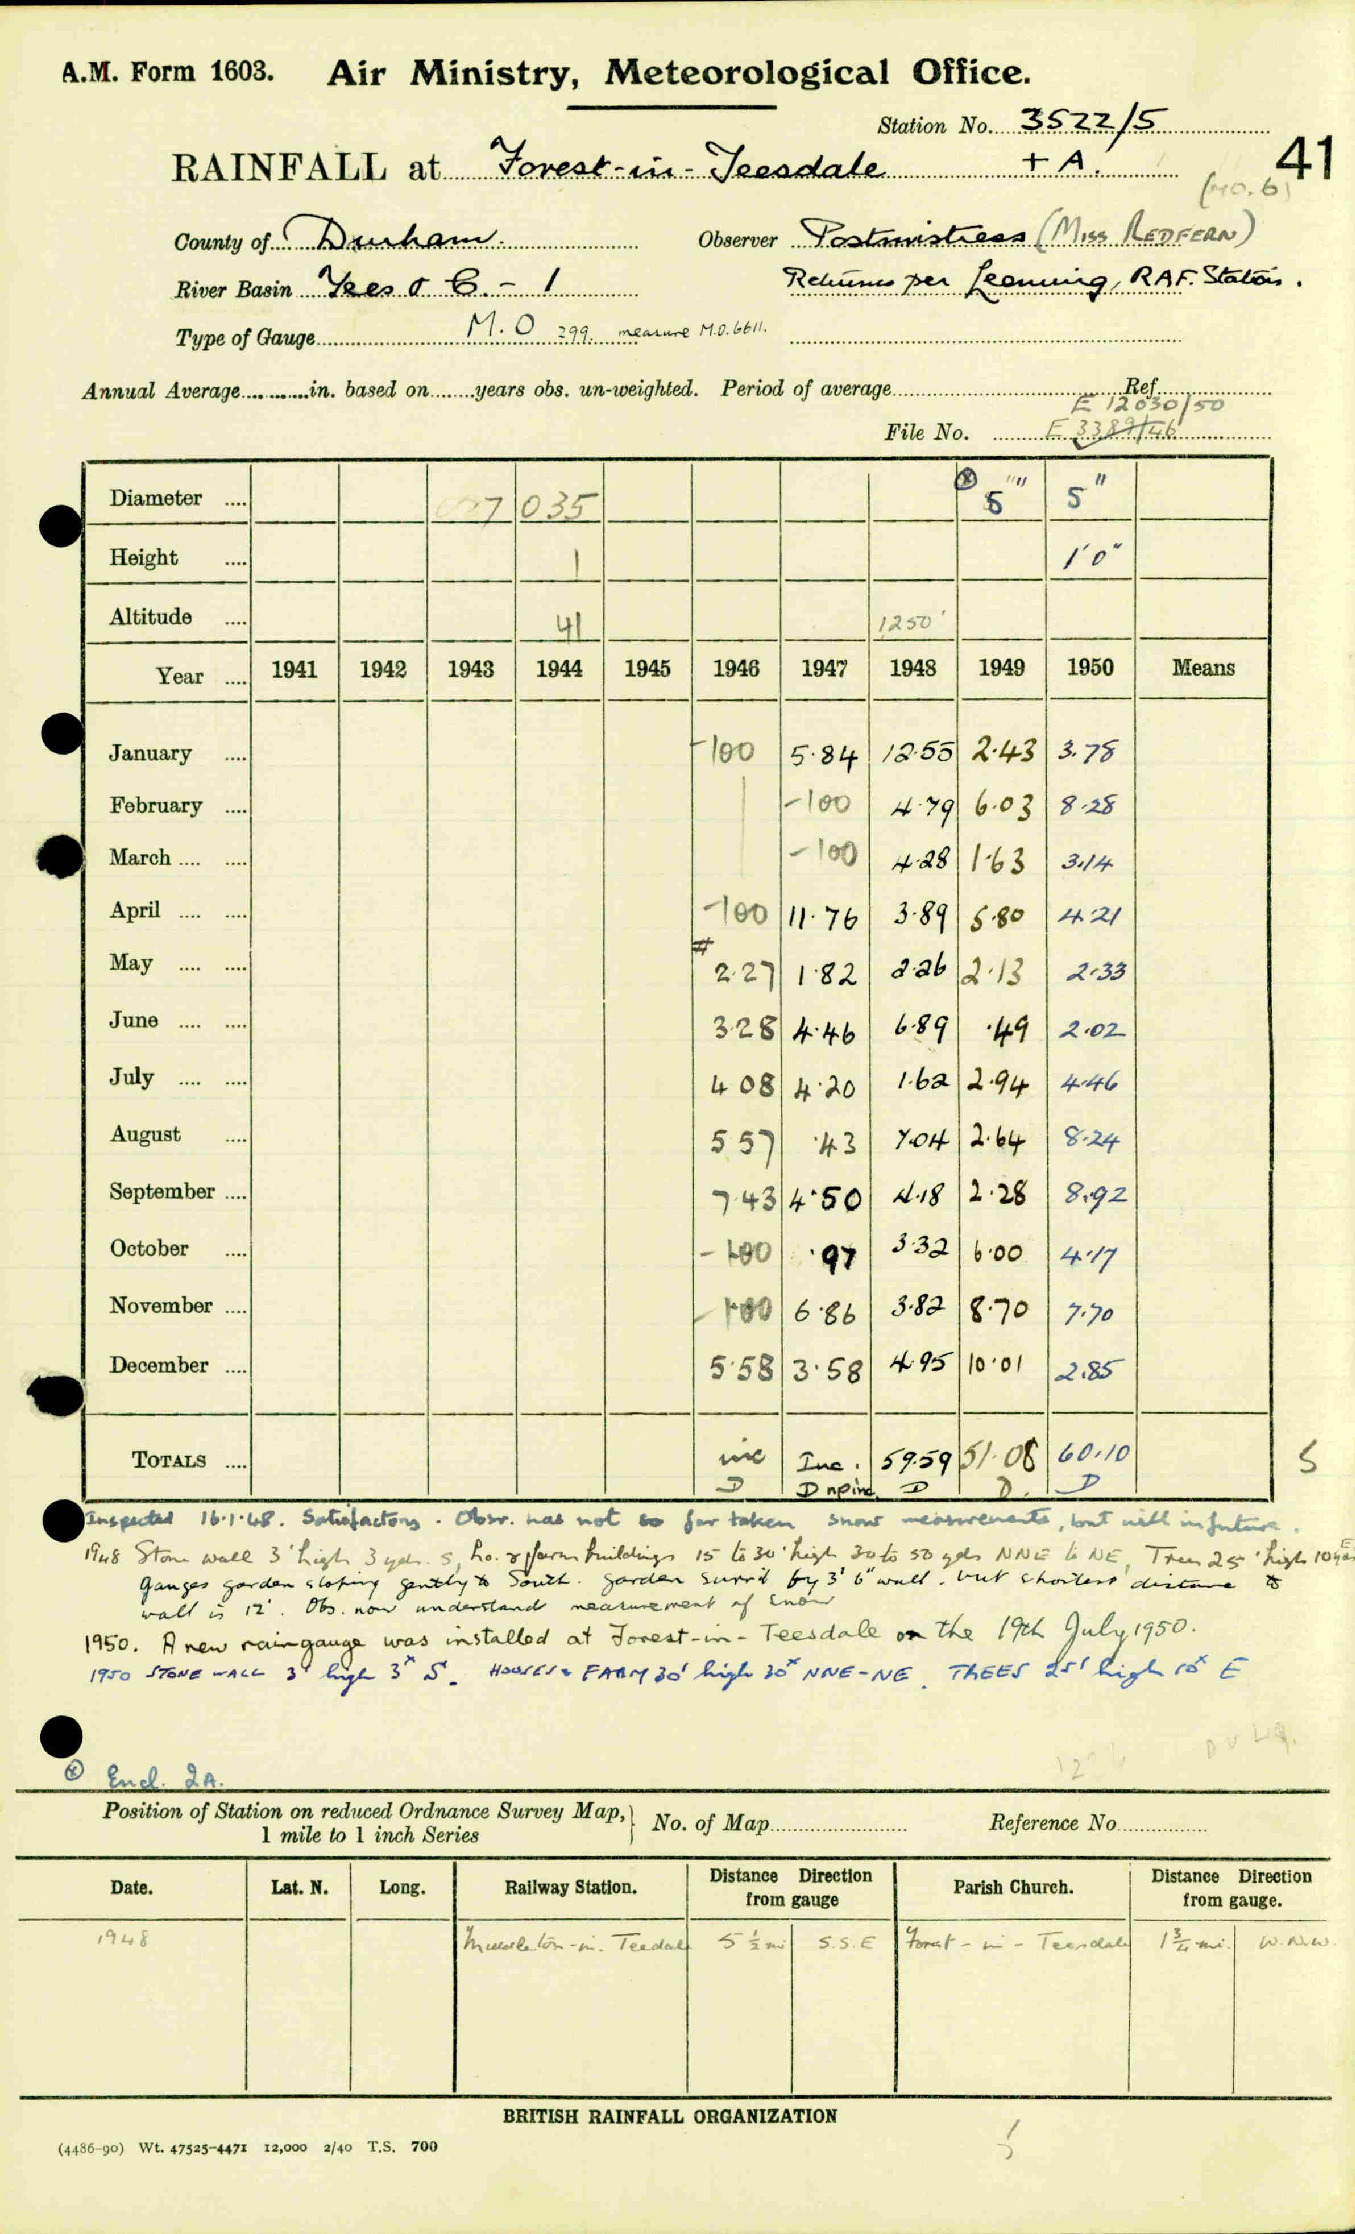 A.M. Form 1603. Air Ministry, Meteorological Office.
Station No. 3522/5
RAINFALL at Forest-in-Teesdale + A. 41
(NO. 6)
County of Durham. Observer Postmistress (MISS REDFERN)
River Basin Tees & C. - 1 Returns per Leeming, RAF. Station.
Type of Gauge M.O 299. measure M.O. 6611.
Annual Average in. based on years obs. un-weighted. Period of average Ref.
E 12030/50
File No. E 3389/46
Diameter 7 035 ⊗ 5" 5"
Height 1 1'0"
Altitude 41 1250'
Year 1941 1942 1943 1944 1945 1946 1947 1948 1949 1950 Means
January -100 5.84 12.55 2.43 3.78
February -100 4.79 6.03 8.28
March -100 4.28 1.63 3.14
April -100 11.76 3.89 5.80 4.21
May # 2.27 1.82 2.26 2.13 2.33
June 3.28 4.46 6.89 .49 2.02
July 4 08 4.20 1.62 2.94 4.46
August 5 57 .43 7.04 2.64 8.24
September 7.43 4.50 4.18 2.28 8.92
October -100 .97 3.32 6.00 4.17
November -100 6.86 3.82 8.70 7.70
December 5.58 3.58 4.95 10.01 2.85
TOTALS inc Inc. 59.59 51.08 60.10 5
D D D D. D
Inspected 16.1.48. Satisfactory. Obsr. has not so far taken snow measurements, but will in future.
1948 Stone wall 3' high 3 yds. S, ho. & farm buildings 15 to 30' high 30 to 50 yds NNE to NE, Trees 25' high 10 yds E
Gauges garden sloping gently to South. Garden surr'd by 3' 6" wall. but shortest distance to
wall is 12'. Obs. now understand measurement of snow
1950. A new raingauge was installed at Forest-in-Teesdale on the 19th July 1950.
1950 STONE WALL 3' high 3ˣ S. HOUSES & FARM 30' high 30ˣ NNE-NE. TREES 25' high 10ˣ E
⊗ Encl. 2A.
Position of Station on reduced Ordnance Survey Map, 1 mile to 1 inch Series } No. of Map Reference No
Date. Lat. N. Long. Railway Station. Distance Direction from gauge Parish Church. Distance Direction from gauge.
1948 Middleton-in-Teesdale 5 ½ mi S.S.E Forest-in-Teesdale 1 ¾ mi. W.N.W.
BRITISH RAINFALL ORGANIZATION
(4486-90) Wt. 47525-4471 12,000 2/40 T.S. 700